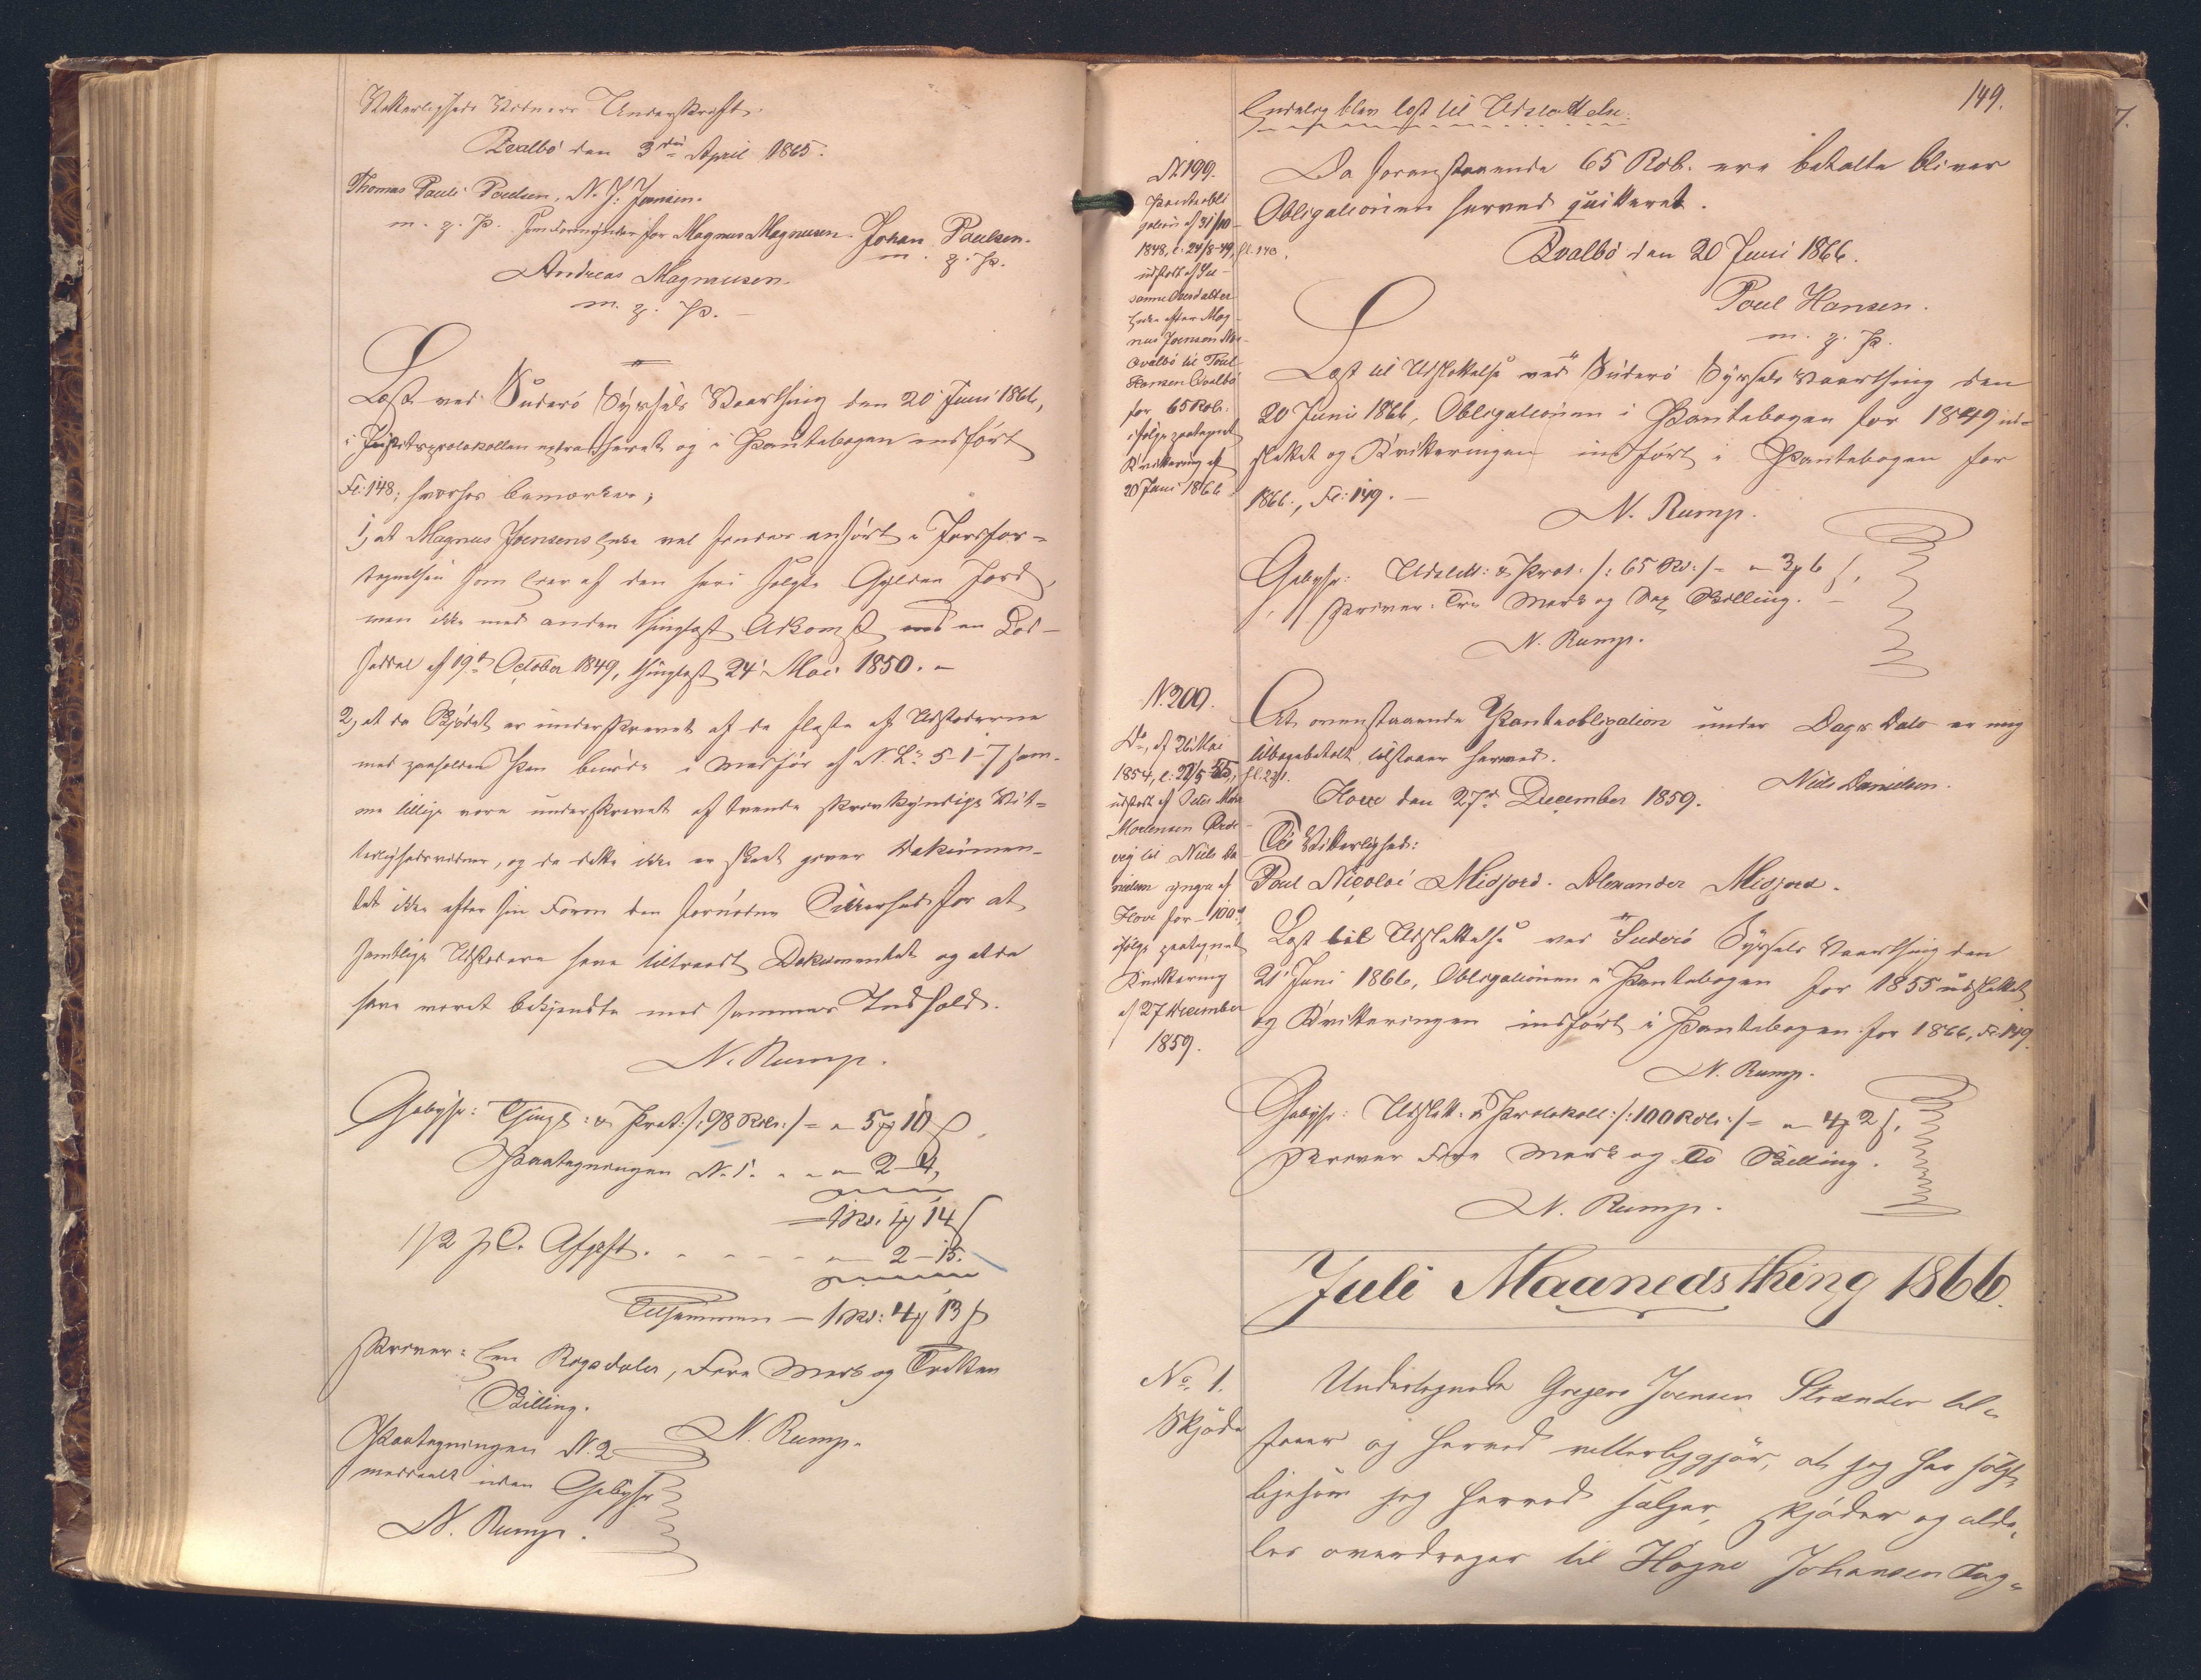 Vitterligheds Vidners Underskrift.
Qvalbø den 3die April 1865.
Thomas Pauli Poulsen, N. J. Joensen.
m. p. P. som Formynder for Magnus Magnussen. Johan Paulsen.
m. p. P.
Andreas Magnussen
m. p. P.
Læst ved Suderø Syssels Vaarthing den 20 Juni 1866,
i Justitsprotokollen extraheret og i Pantebogen indført
Fl: 148; hvorhos bemærkes;
1, at Magnus Joensens Enke vel findes anført i Jordfor-
tegnelsen som Eier af den heri solgte Gylden Jord,
men ikke med anden thinglæst Adkomst end en Lod-
seddel af 19de October 1849, thinglæst 24 Mai 1850. -
2, at da Skjødet er underskrevet af de fleste af Udstederne
med paaholden Pen burde i Medfør af N. L. 5-1-7 sam-
me tillige være underskrevet af tvende skrivkyndige Vit-
terlighedsvidner, og da dette ikke er skeet giver Dokumen-
tet ikke efter sin Form den fornødne Sikkerhed for at
samtlige Udstedere have tiltraadt Dokumentet og at de
have været bekjendte med sammes Indhold.
N. Rump.
Gebyhr: Thingl: & Prot: /: 98 Rdlr: / = - 5 10
Paategningen N. 1. - - - 2 - 4,
1 Rd. 14
1/2 pC. Afgift. - - - - - 2 - 15.
Tilsammen - 1 Rd: 4 13
skriver: Een Rigsdaler, Fire Mark og Tretten
Skilling.
Paategningen N. 2
N. Rump.
meddeelt uden Gebyhr
N. Rump.
149.
Endelig blev læst til Udslettelse:
N. 199.
Panteobli
gation af 31/10
1848, l. 24/8 49, fl. 143.
udstedt af Su-
sanne Enke efter Mag
nus Joensen
Qvalbø til Poul
Hansen Qvalbø
for 65 Rdlr.
ifølge paategnet
Kvittering af
20 Juni 1866
Da foranstaaende 65 Rdl. ere betalte bliver
Obligationen herved quitteret.
Qvalbø den 20 Juni 1866.
Poul Hansen.
m. p. P.
Læst til Udslettelse ved Suderø Syssels Vaarthing den
20 Juni 1866, Obligationen i Pantebogen for 1849 ud-
slettet og Kvitteringen indført i Pantebogen for
1866, Fl: 149. -
N. Rump.
Gebyhr: Udslett: & Prot: /: 65 Rd: / = - 3 6
skriver: Tre Mark og Sex Skilling. -
N. Rump.
N. 200.
Do, af 26 Mai
1854, l. 22/5 55, fl. 231.
udstedt af Peter
Mortensen
vig til Niels Da-
nielsen yngre af
Hove for 100
ifølge paategnet
Kvittering
af 27 December
1859.
At ovenstaaende Panteobligation under Dags Dato er mig
tilbagebetalt tilstaaer herved.
Hove den 27de December 1859.
Niels Danielsen.
Til Vitterlighed:
Poul Nicolai Midjord. Alexander Midjord.
Læst til Udslettelse ved Suderø Syssels Vaarthing den
21 Juni 1866, Obligationen i Pantebogen for 1855 udslettet
og Kvitteringen indført i Pantebogen for 1866, Fl. 149.
N. Rump.
Gebyhr: Udslett. & Protokoll: /: 100 Rdlr: / = - 4 2
skriver Fire Mark og To Skilling.
N. Rump.
Juli Maanedsthing 1866.
No. 1.
Skjøde
Undertegnede Gregers Joensen Strænder til-
staaer og herved vitterliggjør, at jeg har solgt,
ligesom jeg herved sælger, skjøder og alde-
les overdrager til Hogne Johansen